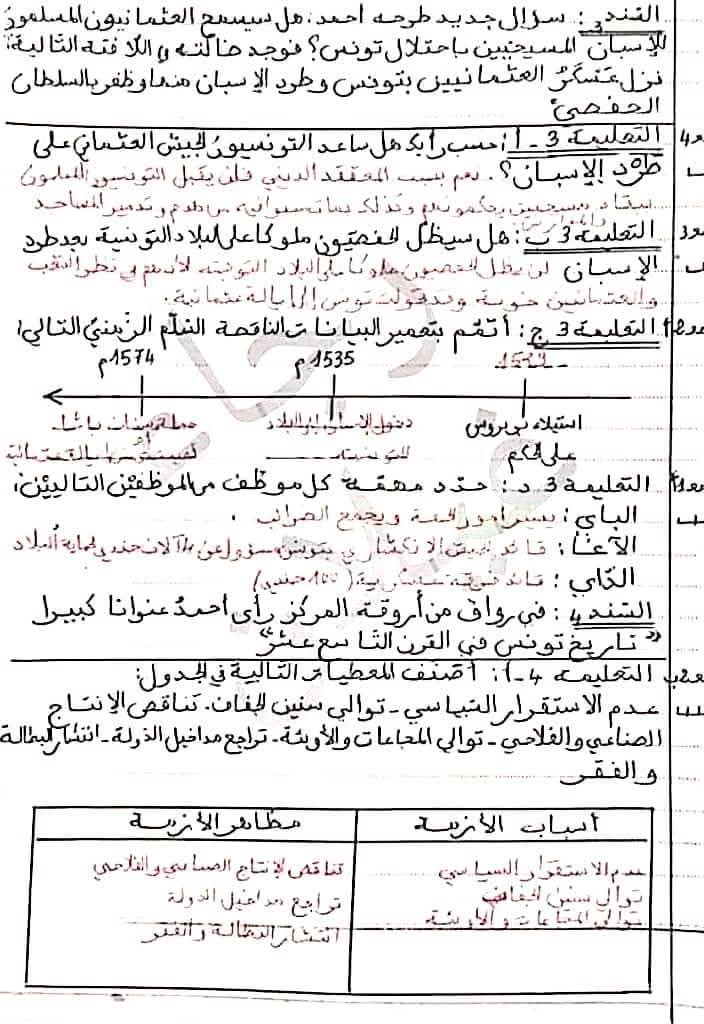 السّند 3: سؤال جديد طرحه أحمد: هل سيسمح العثمانيون المسلمون
للإسبان المسيحيين باحتلال تونس؟ فوجد ضالّته في اللافتة التالية:
نزل عسكرُ العثمانيين بتونس وطرد الإسبان منها وظفر بالسلطان
الحفصيّ.
التعليمة 3-أ: حسب رأيك هل ساعد التونسيون الجيش العثماني على
طرد الإسبان؟ . نعم بسبب المعتقد الديني فلن يقبل التونسيون المسلمون
بقاء مسيحيين يحكمونهم وكذلك بما تسبوا فيه من هدم وتدمير المساجد
التعليمة 3 ب: هل سيظل الحفصيّون ملوكا على البلاد التونسية بعد طرد
الإسبان لن يظل الحفصيون ملوكا على البلاد التونسية لأنهم في نظر الشعب
والعثمانيين خونة وقد تحولت تونس إلى إيالة عثمانية.
التعليمة 3 ج: أتمّم بتعمير البيانات الناقصة السّلّم الزّمنيّ التالي:
1574م 1535م
استيلاء بربروس
على الحكم
دخول الإسبان إلى البلاد
التونسية
حملة سنان باشا
التعليمة 3 د: حدّد مهمّة كل موظّف من الموظّفين التاليين:
الباي: يسير أمور المحلة ويجمع الضرائب .
الآغا: قائد الجيش الانكشاري بتونس مسؤول عن 4 آلاف جندي لحماية البلاد
الدّاي: قائد فرقة عسكرية (100 جندي)
السّند 4: في رواق من أروقة المركز رأى أحمدُ عنوانا كبيرا
"تاريخ تونس في القرن التاسع عشر"
التعليمة 4-أ: أصنّف المعطيات التالية في الجدول:
عدم الاستقرار السّياسي - توالي سنين الجفاف. تناقص الإنتاج
الصناعي والفلاحي - توالي المجاعات والأوبئة. تراجع مداخيل الدّولة - انتشار البطالة
والفقر
أسباب الأزمة مظاهر الأزمة
عدم الاستقرار السياسي تناقص الإنتاج الصناعي والفلاحي
توالي سنين الجفاف تراجع مداخيل الدولة
توالي المجاعات والأوبئة انتشار البطالة والفقر